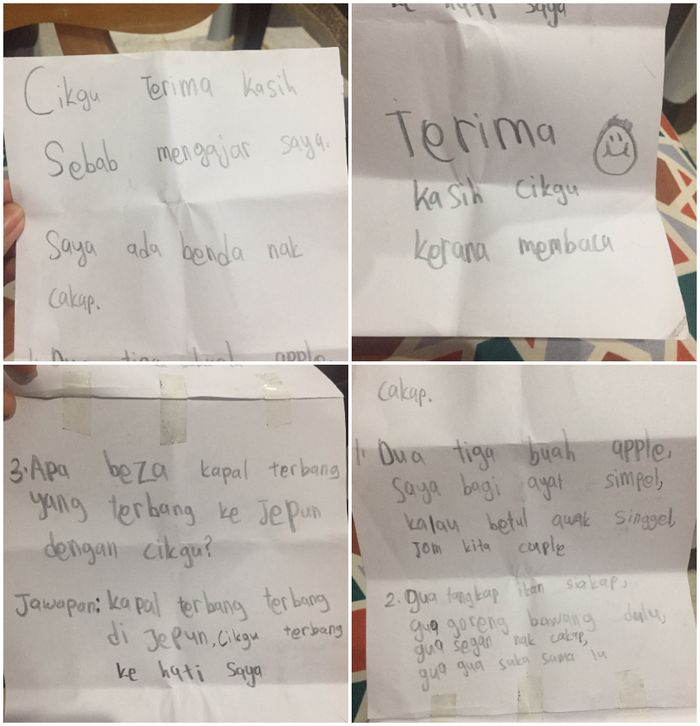 Cikgu Terima Kasih
Sebab mengajar saya.
Saya ada benda nak
cakap.
1. Dua tiga buah apple,
ke hati saya
Terima
Kasih cikgu
Kerana membaca
3. Apa beza kapal terbang
yang terbang ke Jepun
dengan cikgu?
Jawapan: kapal terbang terbang
di Jepun, Cikgu terbang
ke hati saya
cakap.
1. Dua tiga buah apple,
Saya bagi ayat simpel,
kalau betul awak singgel,
Jom kita cuple
2. gua tangkap ikan siakap,
gua goreng bawang dulu,
gua segan nak cakap,
gua gua suka sama lu